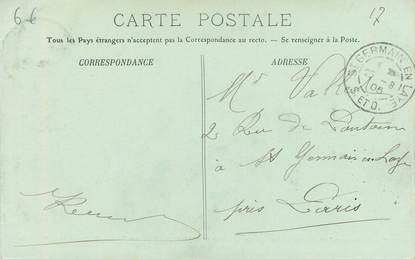 66
17
CARTE POSTALE
Tous les Pays étrangers n'acceptent pas la Correspondance au recto. — Se renseigner à la Poste.
CORRESPONDANCE
ADRESSE
ST GERMAIN-EN-LAYE
S. ET O.
Mr
2 Rue de
à St Germain en Laye
près Paris